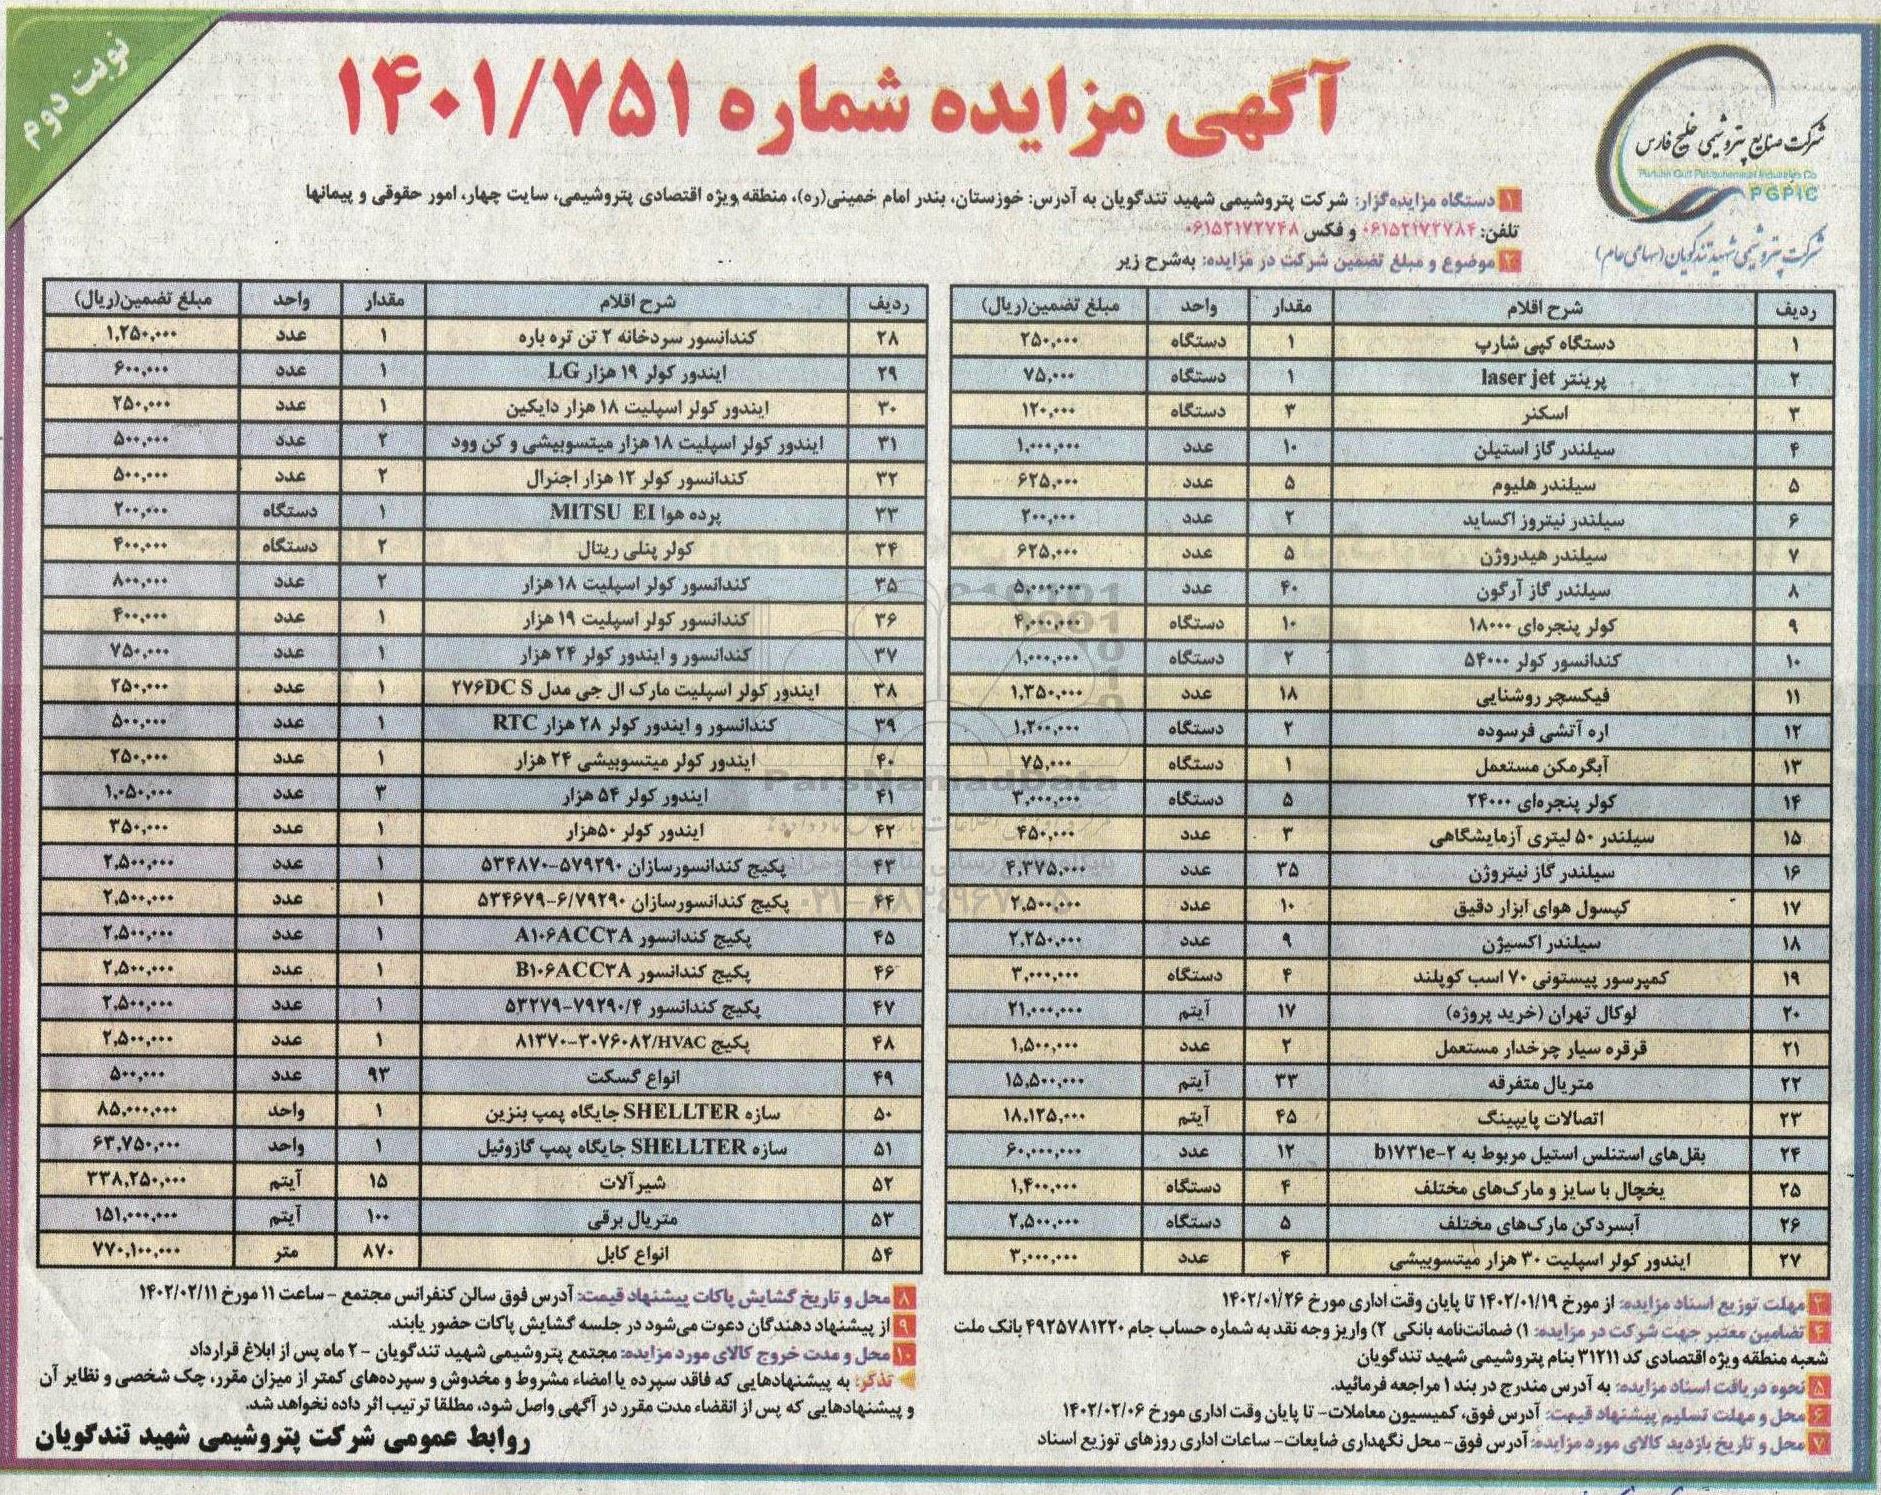 نوبت دوم
آگهی مزایده شماره ۱۴۰۱/۷۵۱
شرکت صنایع پتروشیمی خلیج فارس
Persian Gulf Petrochemical Industries Co
PGPIC
شرکت پتروشیمی شهید تندگویان (سهامی عام)
۱ دستگاه مزایده‌گزار: شرکت پتروشیمی شهید تندگویان به آدرس: خوزستان، بندر امام خمینی(ره)، منطقه ویژه اقتصادی پتروشیمی، سایت چهار، امور حقوقی و پیمانها
تلفن: ۰۶۱۵۲۱۷۲۷۸۴ و فکس ۰۶۱۵۲۱۷۲۷۴۸
۲ موضوع و مبلغ تضمین شرکت در مزایده: به‌شرح زیر
ردیف شرح اقلام مقدار واحد مبلغ تضمین(ریال)
۱ دستگاه کپی شارپ ۱ دستگاه ۲۵۰,۰۰۰
۲ پرینتر laser jet ۱ دستگاه ۷۵,۰۰۰
۳ اسکنر ۳ دستگاه ۱۲۰,۰۰۰
۴ سیلندر گاز استیلن ۱۰ عدد ۱,۰۰۰,۰۰۰
۵ سیلندر هلیوم ۵ عدد ۶۲۵,۰۰۰
۶ سیلندر نیتروز اکساید ۲ عدد ۲۰۰,۰۰۰
۷ سیلندر هیدروژن ۵ عدد ۶۲۵,۰۰۰
۸ سیلندر گاز آرگون ۴۰ عدد ۵,۰۰۰,۰۰۰
۹ کولر پنجره‌ای ۱۸۰۰۰ ۱۰ دستگاه ۴,۰۰۰,۰۰۰
۱۰ کندانسور کولر ۵۴۰۰۰ ۲ دستگاه ۱,۰۰۰,۰۰۰
۱۱ فیکسچر روشنایی ۱۸ عدد ۱,۳۵۰,۰۰۰
۱۲ اره آتشی فرسوده ۲ دستگاه ۱,۲۰۰,۰۰۰
۱۳ آبگرمکن مستعمل ۱ دستگاه ۷۵,۰۰۰
۱۴ کولر پنجره‌ای ۲۴۰۰۰ ۵ دستگاه ۳,۰۰۰,۰۰۰
۱۵ سیلندر ۵۰ لیتری آزمایشگاهی ۳ عدد ۴۵۰,۰۰۰
۱۶ سیلندر گاز نیتروژن ۳۵ عدد ۴,۳۷۵,۰۰۰
۱۷ کپسول هوای ابزار دقیق ۱۰ عدد ۲,۵۰۰,۰۰۰
۱۸ سیلندر اکسیژن ۹ عدد ۲,۲۵۰,۰۰۰
۱۹ کمپرسور پیستونی ۷۰ اسب کوپلند ۴ دستگاه ۳,۰۰۰,۰۰۰
۲۰ لوکال تهران (خرید پروژه) ۱۷ آیتم ۲۱,۰۰۰,۰۰۰
۲۱ قرقره سیار چرخدار مستعمل ۲ عدد ۱,۵۰۰,۰۰۰
۲۲ متریال متفرقه ۳۳ آیتم ۱۵,۵۰۰,۰۰۰
۲۳ اتصالات پایپینگ ۴۵ آیتم ۱۸,۱۲۵,۰۰۰
۲۴ بقل‌های استنلس استیل مربوط به b۱۷۳۱e-۲ ۱۲ عدد ۶۰,۰۰۰,۰۰۰
۲۵ یخچال با سایز و مارک‌های مختلف ۴ دستگاه ۱,۴۰۰,۰۰۰
۲۶ آبسردکن مارک‌های مختلف ۵ دستگاه ۲,۵۰۰,۰۰۰
۲۷ ایندور کولر اسپلیت ۳۰ هزار میتسوبیشی ۴ عدد ۳,۰۰۰,۰۰۰
ردیف شرح اقلام مقدار واحد مبلغ تضمین(ریال)
۲۸ کندانسور سردخانه ۲ تن تره باره ۱ عدد ۱,۲۵۰,۰۰۰
۲۹ ایندور کولر ۱۹ هزار LG ۱ عدد ۶۰۰,۰۰۰
۳۰ ایندور کولر اسپلیت ۱۸ هزار دایکین ۱ عدد ۲۵۰,۰۰۰
۳۱ ایندور کولر اسپلیت ۱۸ هزار میتسوبیشی و کن وود ۲ عدد ۵۰۰,۰۰۰
۳۲ کندانسور کولر ۱۲ هزار اجنرال ۲ عدد ۵۰۰,۰۰۰
۳۳ پرده هوا MITSU EI ۱ دستگاه ۲۰۰,۰۰۰
۳۴ کولر پنلی ریتال ۲ دستگاه ۴۰۰,۰۰۰
۳۵ کندانسور کولر اسپلیت ۱۸ هزار ۲ عدد ۸۰۰,۰۰۰
۳۶ کندانسور کولر اسپلیت ۱۹ هزار ۱ عدد ۴۰۰,۰۰۰
۳۷ کندانسور و ایندور کولر ۲۴ هزار ۱ عدد ۷۵۰,۰۰۰
۳۸ ایندور کولر اسپلیت مارک ال جی مدل ۲۷۶DC S ۱ عدد ۲۵۰,۰۰۰
۳۹ کندانسور و ایندور کولر ۲۸ هزار RTC ۱ عدد ۵۰۰,۰۰۰
۴۰ ایندور کولر میتسوبیشی ۲۴ هزار ۱ عدد ۲۵۰,۰۰۰
۴۱ ایندور کولر ۵۴ هزار ۳ عدد ۱,۰۵۰,۰۰۰
۴۲ ایندور کولر ۵۰هزار ۱ عدد ۳۵۰,۰۰۰
۴۳ پکیج کندانسورسازان ۵۷۹۲۹۰-۵۳۴۸۷۰ ۱ عدد ۲,۵۰۰,۰۰۰
۴۴ پکیج کندانسورسازان ۶/۷۹۲۹۰-۵۳۴۶۷۹ ۱ عدد ۲,۵۰۰,۰۰۰
۴۵ پکیج کندانسور A۱۰۶ACC۳A ۱ عدد ۲,۵۰۰,۰۰۰
۴۶ پکیج کندانسور B۱۰۶ACC۳A ۱ عدد ۲,۵۰۰,۰۰۰
۴۷ پکیج کندانسور ۷۹۲۹۰/۴-۵۳۲۷۹ ۱ عدد ۲,۵۰۰,۰۰۰
۴۸ پکیج ۸۱۳۷۰-۳۰۷۶۰۸۲/HVAC ۱ عدد ۲,۵۰۰,۰۰۰
۴۹ انواع گسکت ۹۳ عدد ۵۰۰,۰۰۰
۵۰ سازه SHELLTER جایگاه پمپ بنزین ۱ واحد ۸۵,۰۰۰,۰۰۰
۵۱ سازه SHELLTER جایگاه پمپ گازوئیل ۱ واحد ۶۳,۷۵۰,۰۰۰
۵۲ شیرآلات ۱۵ آیتم ۳۳۸,۲۵۰,۰۰۰
۵۳ متریال برقی ۱۰۰ آیتم ۱۵۱,۰۰۰,۰۰۰
۵۴ انواع کابل ۸۷۰ متر ۷۷۰,۱۰۰,۰۰۰
۳ مهلت توزیع اسناد مزایده: از مورخ ۱۴۰۲/۰۱/۱۹ تا پایان وقت اداری مورخ ۱۴۰۲/۰۱/۲۶
۴ تضامین معتبر جهت شرکت در مزایده: ۱) ضمانت‌نامه بانکی ۲) واریز وجه نقد به شماره حساب جام ۴۹۲۵۷۸۱۲۲۰ بانک ملت
شعبه منطقه ویژه اقتصادی کد ۳۱۲۱۱ بنام پتروشیمی شهید تندگویان
۵ نحوه دریافت اسناد مزایده: به آدرس مندرج در بند ۱ مراجعه فرمائید.
۶ محل و مهلت تسلیم پیشنهاد قیمت: آدرس فوق، کمیسیون معاملات- تا پایان وقت اداری مورخ ۱۴۰۲/۰۲/۰۶
۷ محل و تاریخ بازدید کالای مورد مزایده: آدرس فوق- محل نگهداری ضایعات- ساعات اداری روزهای توزیع اسناد
۸ محل و تاریخ گشایش پاکات پیشنهاد قیمت: آدرس فوق سالن کنفرانس مجتمع - ساعت ۱۱ مورخ ۱۴۰۲/۰۲/۱۱
۹ از پیشنهاد دهندگان دعوت می‌شود در جلسه گشایش پاکات حضور یابند.
۱۰ محل و مدت خروج کالای مورد مزایده: مجتمع پتروشیمی شهید تندگویان - ۲ ماه پس از ابلاغ قرارداد
تذکر: به پیشنهادهایی که فاقد سپرده یا امضاء مشروط و مخدوش و سپرده‌های کمتر از میزان مقرر، چک شخصی و نظایر آن
و پیشنهادهایی که پس از انقضاء مدت مقرر در آگهی واصل شود، مطلقا ترتیب اثر داده نخواهد شد.
روابط عمومی شرکت پتروشیمی شهید تندگویان
ParsNamadData